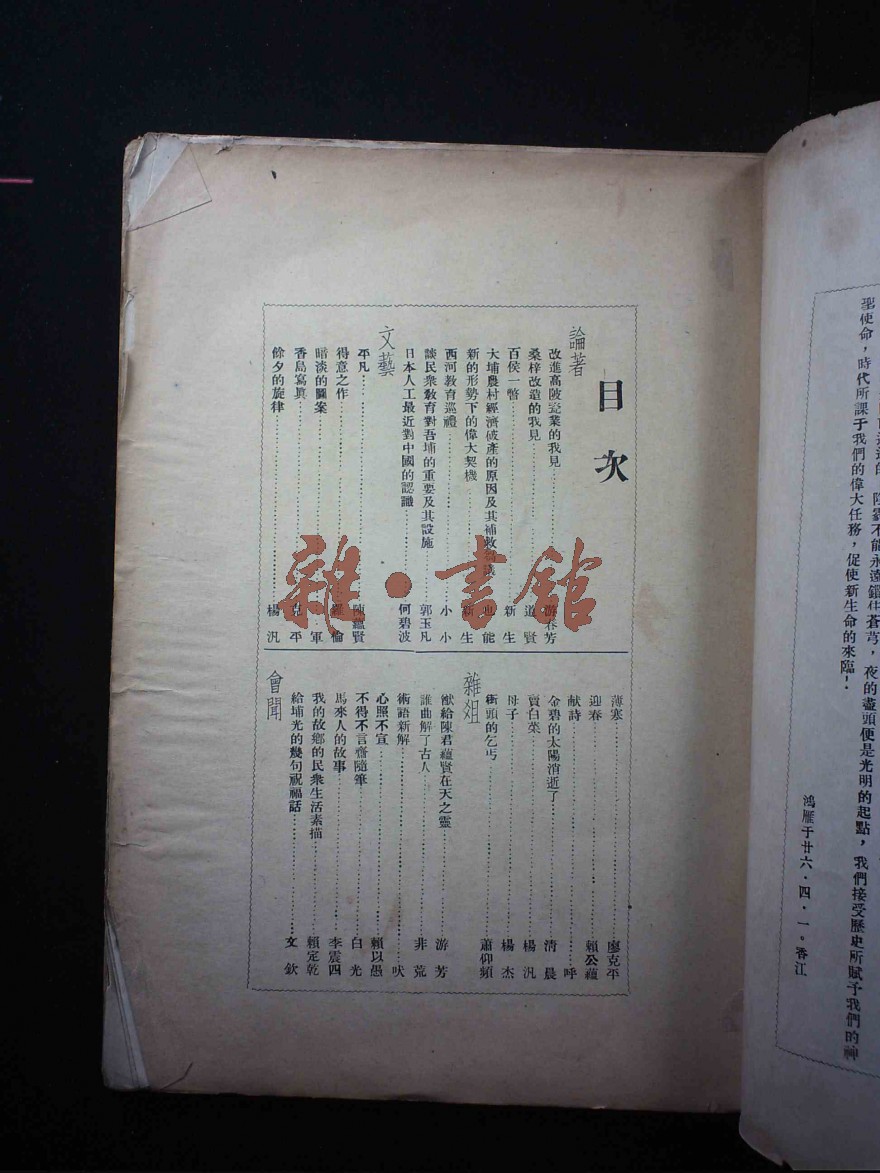 聖使命，時代所課于我們的偉大任務，促使新生命的來臨！
不能永遠鎖住蒼穹，夜的盡頭便是光明的起點，我們接受歷史所賦予我們的神
鴻雁于廿六・四・一。香江
目次
論著
改進高陂瓷業的我見 游春芳
桑梓改造的我見 道賢
百侯一瞥 新生
大埔農村經濟破產的原因及其補救 也能
新的形勢下的偉大契機 新生
西河教育巡禮 小小
談民衆教育對吾埔的重要及其設施 郭玉凡
日本人工最近對中國的認識 何碧波
文藝
平凡 陳蘊賢
得意之作 倫
暗淡的圖案 軍
香島寫眞 克平
餘夕的旋律 楊汎
薄寒 廖克平
迎春 賴公蘊
献詩 呼
金碧的太陽消逝了 清晨
賣白菜 楊汎
母子 楊杰
街頭的乞丐 蕭仰頻
雜俎
献給陳君蘊賢在天之靈 游芳
誰曲解了古人 非荒
術語新解 吠
心照不宣 賴以愚
不得不言齋隨筆 白光
馬來人的故事 李震四
我的故鄉的民衆生活素描 賴定乾
給埔光的幾句祝福話 文欽
會聞
雜・書館